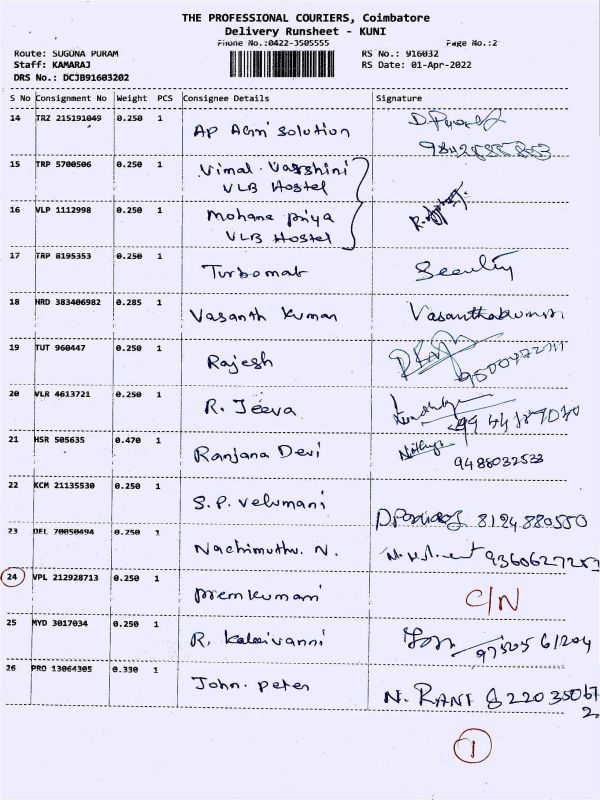 THE PROFESSIONAL COURIERS, Coimbatore
Delivery Runsheet - KUNI
Phone No.:0422-3505555 Page No.:2
Route: SUGUNA PURAM RS No.: 916032
Staff: KAMARAJ RS Date: 01-Apr-2022
DRS No.: DCJB91603202
S No Consignment No Weight PCS Consignee Details Signature
14 TRZ 215191049 0.250 1 AP Agni Solution
15 TRP 5700506 0.250 1 Vimal. Varshini
VLB Hostel
16 VLP 1112998 0.250 1 Mohana priya
VLB Hostel
17 TRP 8195353 0.250 1 Turbomat Security
18 HRD 383406982 0.285 1 Vasanth Kumar Vasanthakumar
19 TUT 960447 0.250 1 Rajesh
20 VLR 4613721 0.250 1 R. Jeeva
21 HSR 505635 0.470 1 Ranjana Devi
9488032533
22 KCM 21135530 0.250 1 S.P. Velumani 8124880550
23 DEL 70050494 0.250 1 Nachimuthu. N.
24 VPL 212928713 0.250 1 Premkumar C/N
25 MYD 3017034 0.250 1 R. Kalaivanni
26 PRO 13064305 0.330 1 John. peter N. RANI
1